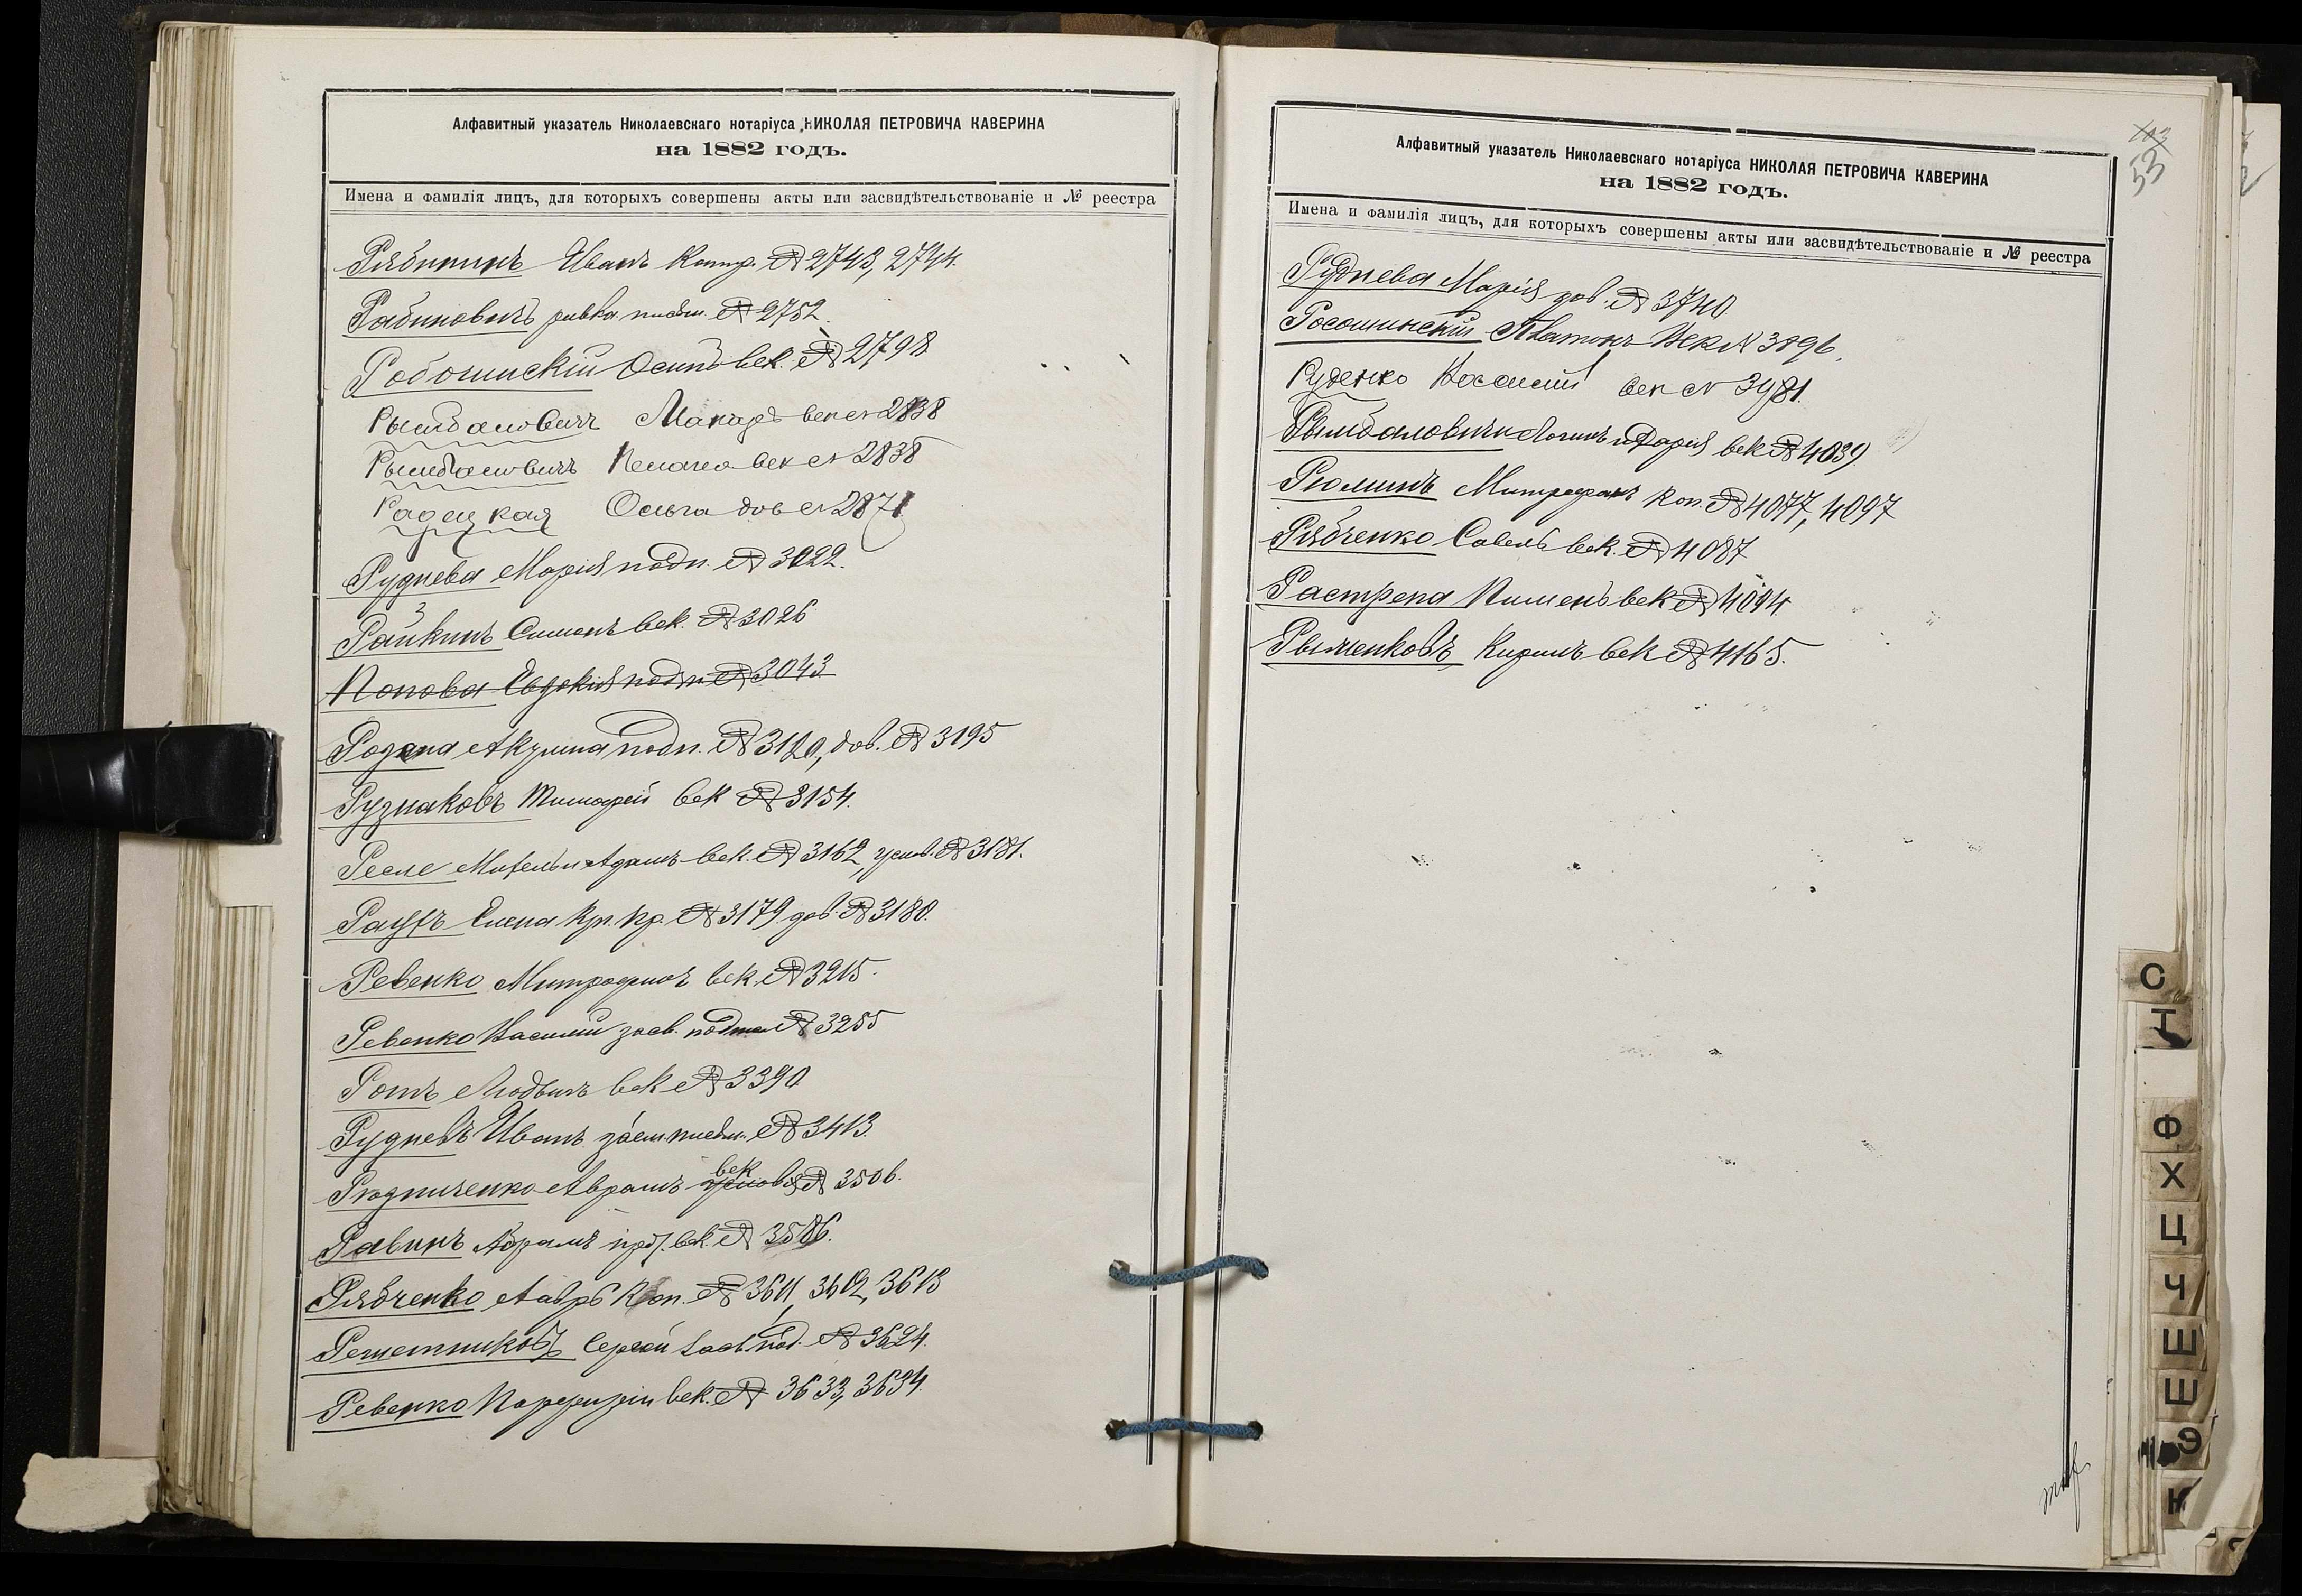 Алфавитный указатель Николаевскаго нотаріуса НИКОЛАЯ ПЕТРОВИЧА КАВЕРИНА
на 1882 годъ.
Имена и фамилія лицъ, для которыхъ совершены акты или засвидѣтельствованіе и № реестра
Рябининъ Иванъ Контр. № 2743, 2744.
Рабиновичъ ривка письм. № 2752.
Робошискій Осипъ век. № 2798
Рымбаловичъ Макаръ век № 2838
Рымбаловичъ век № 2838
Радецкая Ольга дов № 2871
Руднева Марія подп. № 3022.
Райкинъ Симонъ век. № 3026
Попова Евдокія подп № 3043
Акулина подп. № 3120, дов. № 3195
Рузнаковъ Тимофей век № 3154.
Ресле Михель и Адамъ век. № 3162, услов. № 3181.
Рауфъ Елена Кр. кр. № 3179 дов. № 3180.
Ревенко Митрофанъ век. № 3215.
Ревенко Василий засв. № 3255
Ротъ Людвигъ век № 3390
Рудневъ Иванъ заем. письм. № 3413.
Рюдниченко Аврамъ век условія № 3506.
Равинъ Абрамъ прот. век. № 3586.
Рябченко Лавръ Коп. № 3611, 3612, 3613
Решетниковъ Сергей засв. под. № 3624.
Ревенко Порфирій век. № 3633, 3634.
103
53
Алфавитный указатель Николаевскаго нотаріуса НИКОЛАЯ ПЕТРОВИЧА КАВЕРИНА
на 1882 годъ.
Имена и фамилія лицъ, для которыхъ совершены акты или засвидѣтельствованіе и № реестра
Руднева Марія дов. № 3740
Росошинскій Платонъ Век № 3896.
Руденко Василий век № 3981.
Рымбаловичи Логинъ и Дарія век № 4039
Рюминъ Митрофанъ Коп. № 4077, 4097
Рябченко Савелъ век. № 4087
Растрепа Пименъ век № 4094
Рыженковъ Кирилъ век № 4165.
С
Т
Ф
Х
Ц
Ч
Ш
Ш
Э